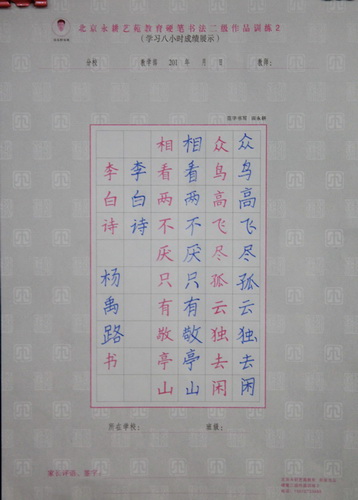 北京永耕艺苑教育硬笔书法二级作品训练2
(学习八小时成绩展示)
分校: 教学部 201 年 月 日 教师:
众鸟高飞尽孤云独去闲
众鸟高飞尽孤云独去闲
相看两不厌只有敬亭山
相看两不厌只有敬亭山
李白诗
李白诗 杨禹路书
所在学校: 班级:
家长评语、签字: